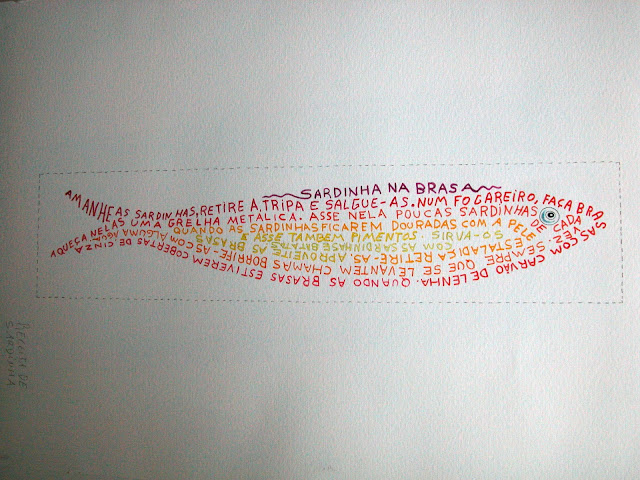 SARDINHA NA BRASA
AMANHE AS SARDINHAS, RETIRE A TRIPA E SALGUE-AS. NUM FOGAREIRO, FAÇA BRA
SAS COM CARVÃO DE LENHA. QUANDO AS BRASAS ESTIVEREM COBERTAS DE CINZA
AQUEÇA NELAS UMA GRELHA METALICA. ASSE NELA POUCAS SARDINHAS DE CADA
VEZ. SEMPRE QUE SE LEVANTEM CHAMAS BORRIFE-AS COM ALGUMA AGUA.
QUANDO AS SARDINHAS FICAREM DOURADAS COM A PELE
ESTALADIÇA RETIRE-AS. APROVEITE AS BRASAS
E ASSE TAMBEM PIMENTOS. SIRVA-OS
COM AS SARDINHAS
RECEITA DE
SARDINHA